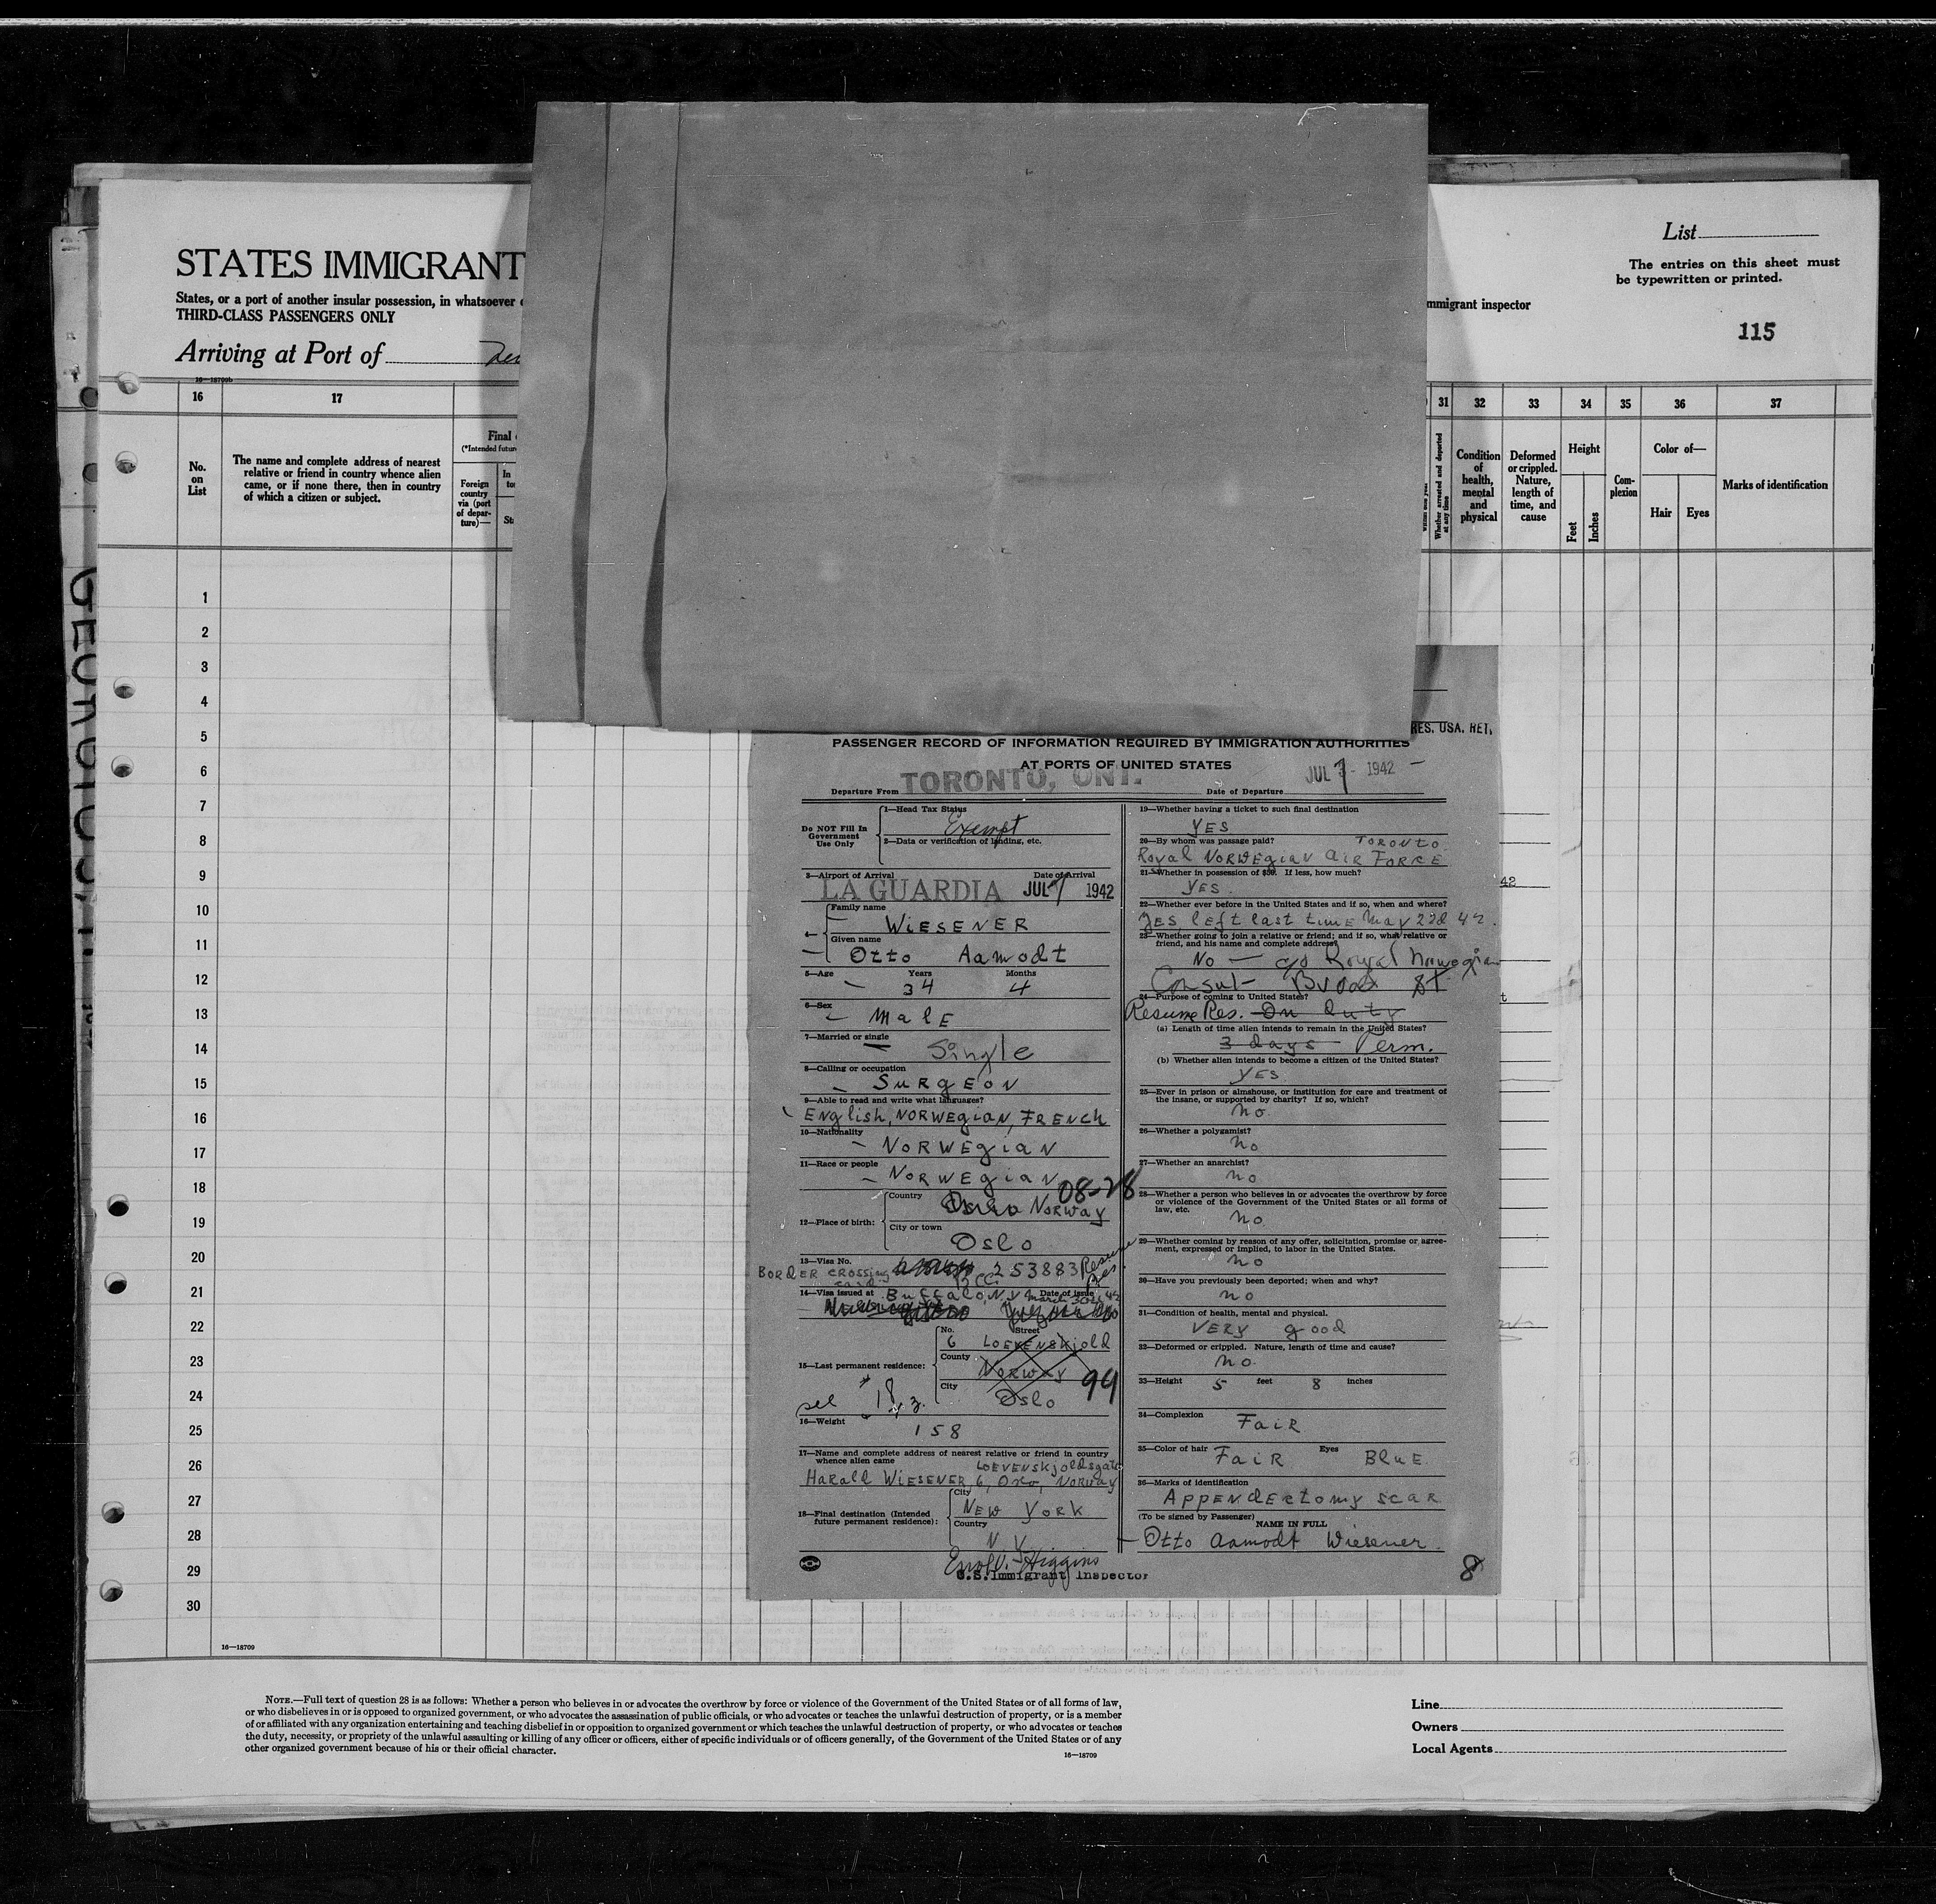 List
The entries on this sheet must
be typewritten or printed.
STATES IMMIGRANT
States, or a port of another insular possession, in whatsoever
THIRD-CLASS PASSENGERS ONLY
mmigrant inspector
115
Arriving at Port of
16—18709b
16 17 31 32 33 34 35 36 37
No.
on
List
The name and complete address of nearest
relative or friend in country whence alien
came, or if none there, then in country
of which a citizen or subject.
Final
(*Intended futur
Foreign
country
via (port
of depar-
ture)—
In
to
St
Whether arrested and deported
at any time
Condition
of
health,
mental
and
physical
Deformed
or crippled.
Nature,
length of
time, and
cause
Height
Feet
Inches
Com-
plexion
Color of—
Hair Eyes
Marks of identification
1
2
3
4
5
6
7
8
9
10
11
12
13
14
15
16
17
18
19
20
21
22
23
24
25
26
27
28
29
30
16—18709
RES. USA. RET.
PASSENGER RECORD OF INFORMATION REQUIRED BY IMMIGRATION AUTHORITIES
AT PORTS OF UNITED STATES
Departure From TORONTO, ONT. Date of Departure JUL 7 - 1942
Do NOT Fill In
Government
Use Only
1—Head Tax Status
Exempt
2—Data or verification of landing, etc.
3—Airport of Arrival Date of Arrival
LA GUARDIA JUL 7 1942
4—
Family name
WIESENER
Given name
Otto Aamodt
5—Age Years Months
34 4
6—Sex
Male
7—Married or single
Single
8—Calling or occupation
SURGEON
9—Able to read and write what languages?
English, NORWEgiAN, FRENch
10—Nationality
NORWEgiaN
11—Race or people
NORWEgiaN
08-28
12—Place of birth:
Country
Norway
City or town
Oslo
13—Visa No.
BORdER CROSSing card BCC 253883 Resume Res.
14—Visa issued at Buffalo, N.Y. Date of issue March 30th 42
15—Last permanent residence:
No. Street
6 LOEVENSKjold
County
NORWAY
City
Oslo
99
16—Weight
158
17—Name and complete address of nearest relative or friend in country
whence alien came LOEVENSKjoldsgate
Harald WIESENER, 6, Oslo, NORWAY
18—Final destination (Intended
future permanent residence):
City
NEW YORK
Country
N.Y.
Errol V. Higgins
U.S. Immigrant Inspector
19—Whether having a ticket to such final destination
YES
20—By whom was passage paid? TORONTO.
Royal NORWEgiaN AIR FORCE
21—Whether in possession of $50. If less, how much?
YES.
22—Whether ever before in the United States and if so, when and where?
YES, left last time May 22d 42.
23—Whether going to join a relative or friend; and if so, what relative or
friend, and his name and complete address?
No — c/o Royal Norwegian
Consul - Broad St
24—Purpose of coming to United States?
Resume Res. On duty
(a) Length of time alien intends to remain in the United States?
3 days Perm.
(b) Whether alien intends to become a citizen of the United States?
YES.
25—Ever in prison or almshouse, or institution for care and treatment of
the insane, or supported by charity? If so, which?
No.
26—Whether a polygamist?
No
27—Whether an anarchist?
No
28—Whether a person who believes in or advocates the overthrow by force
or violence of the Government of the United States or all forms of
law, etc.
No
29—Whether coming by reason of any offer, solicitation, promise or agree-
ment, expressed or implied, to labor in the United States.
No
30—Have you previously been deported; when and why?
No
31—Condition of health, mental and physical.
VERY good
32—Deformed or crippled. Nature, length of time and cause?
No.
33—Height 5 feet 8 inches
34—Complexion
FaiR
35—Color of hair FaiR Eyes BluE
36—Marks of identification
APPENdEctomy scaR
(To be signed by Passenger)
NAME IN FULL
Otto Aamodt Wiesener.
8
42
NOTE.—Full text of question 28 is as follows: Whether a person who believes in or advocates the overthrow by force or violence of the Government of the United States or of all forms of law,
or who disbelieves in or is opposed to organized government, or who advocates the assassination of public officials, or who advocates or teaches the unlawful destruction of property, or is a member
of or affiliated with any organization entertaining and teaching disbelief in or opposition to organized government or which teaches the unlawful destruction of property, or who advocates or teaches
the duty, necessity, or propriety of the unlawful assaulting or killing of any officer or officers, either of specific individuals or of officers generally, of the Government of the United States or of any
other organized government because of his or their official character.
16—18709
Line
Owners
Local Agents